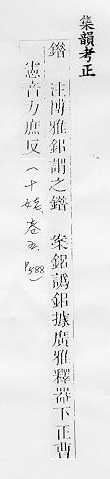 集韻考正
鐕 注博雅鉊謂之鐕 案銘譌鉊據廣雅釋器下正曹
憲音力庶反（十姥 卷五 P588）